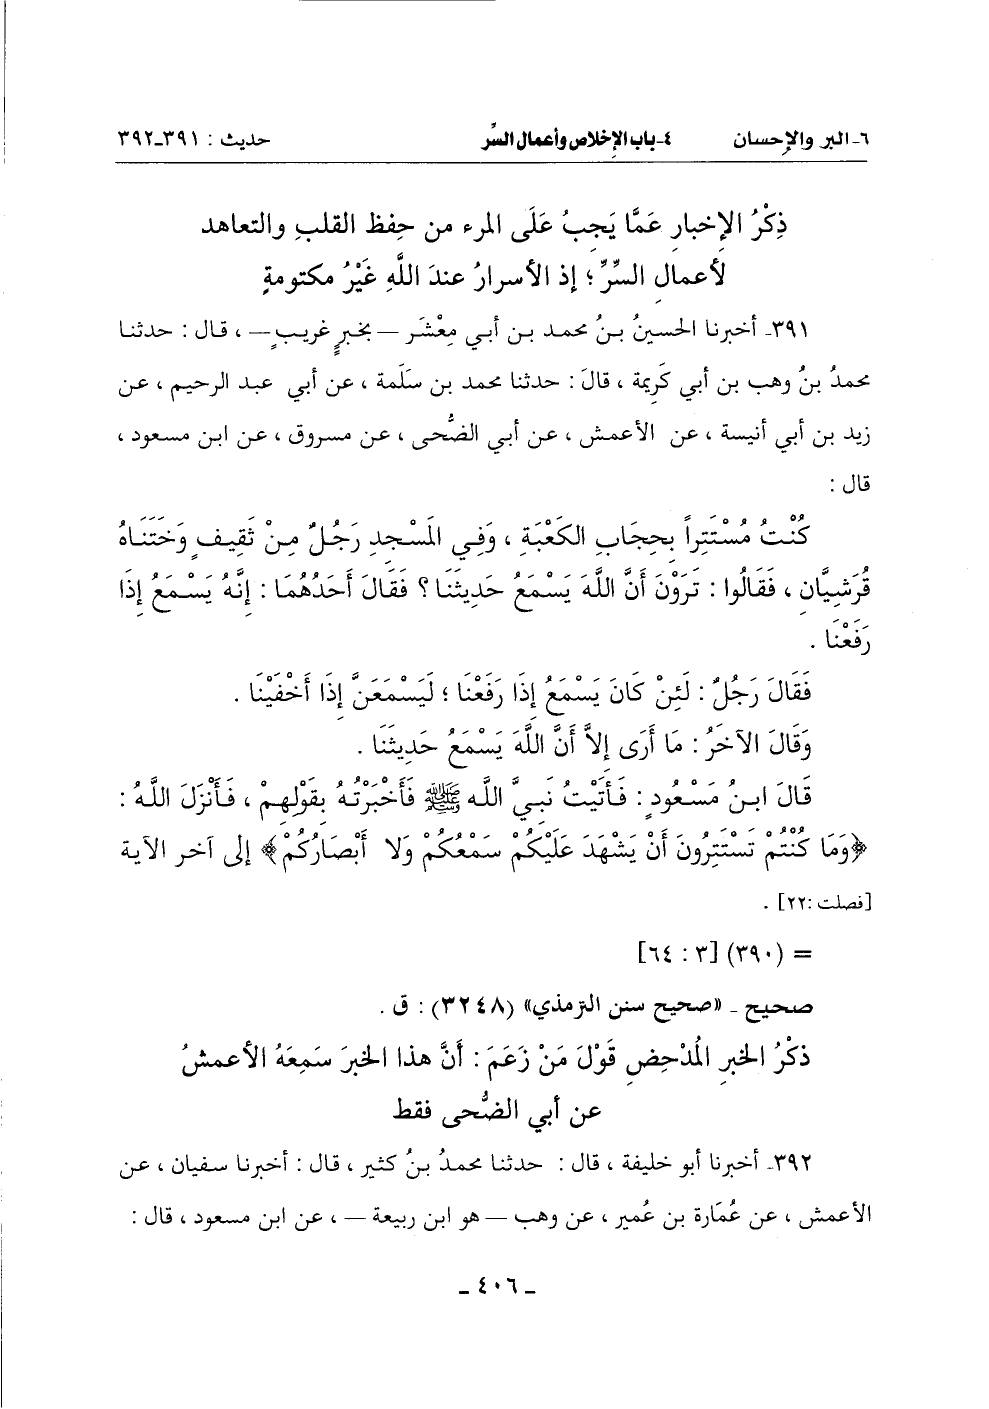 ٦- البر والإحسان ٤- باب الإخلاص وأعمال السِّر حديث : ٣٩١-٣٩٢
ذِكْرُ الإخبارِ عَمَّا يَجِبُ عَلَى المرء من حِفظ القلبِ والتعاهد
لأعمالِ السِّرِّ ؛ إذ الأسرارُ عندَ اللَّهِ غَيْرُ مكتومةٍ
٣٩١- أخبرنا الحسينُ بنُ محمد بن أبي مِعْشَر – بخبرٍ غريبٍ – ، قال : حدثنا
محمدُ بنُ وهب بن أبي كَرِيمة ، قالَ : حدثنا محمد بن سَلَمة ، عن أبي عبد الرحيم ، عن
زيد بن أبي أنيسة ، عن الأعمش ، عن أبي الضُّحى ، عن مسروق ، عن ابن مسعود ،
قال :
كُنْتُ مُسْتَتِراً بحِجَابِ الكَعْبَةِ ، وَفِي المَسْجدِ رَجُلٌ مِنْ ثَقِيفٍ وَخَتَنَاهُ
قُرَشِيَّانِ ، فَقَالُوا : تَرَوْنَ أَنَّ اللَّهَ يَسْمَعُ حَدِيثَنَا ؟ فَقَالَ أَحَدُهُمَا : إِنَّهُ يَسْمَعُ إِذَا
رَفَعْنَا .
فَقَالَ رَجُلٌ : لَئِنْ كَانَ يَسْمَعُ إِذَا رَفَعْنَا ؛ لَيَسْمَعَنَّ إِذَا أَخْفَيْنَا .
وَقَالَ الآخَرُ : مَا أَرَى إِلاَّ أَنَّ اللَّهَ يَسْمَعُ حَدِيثَنَا .
قَالَ ابنُ مَسْعُودٍ : فَأَتَيْتُ نَبيَّ اللَّه ﷺ فَأَخْبَرْتُهُ بِقَوْلِهِمْ ، فَأَنْزَلَ اللَّهُ :
﴿وَمَا كُنْتُمْ تَسْتَتِرُونَ أَنْ يَشْهَدَ عَلَيْكُمْ سَمْعُكُمْ وَلا أَبْصَارُكُمْ﴾ إلى آخر الآية
[فصلت :٢٢] .
= (٣٩٠) [٣ : ٦٤]
صحيح - «صحيح سنن الترمذي» (٣٢٤٨) : ق .
ذكْرُ الخبرِ المُدْحِضِ قَوْلَ مَنْ زَعَمَ : أَنَّ هذا الخبرَ سَمِعَهُ الأعمشُ
عن أبي الضُّحى فقط
٣٩٢- أخبرنا أبو خليفة ، قال : حدثنا محمدُ بنُ كثير ، قال : أخبرنا سفيان ، عن
الأعمش ، عن عُمَارة بن عُمير ، عن وهب – هو ابن ربيعة – ، عن ابن مسعود ، قال :
- ٤٠٦ -